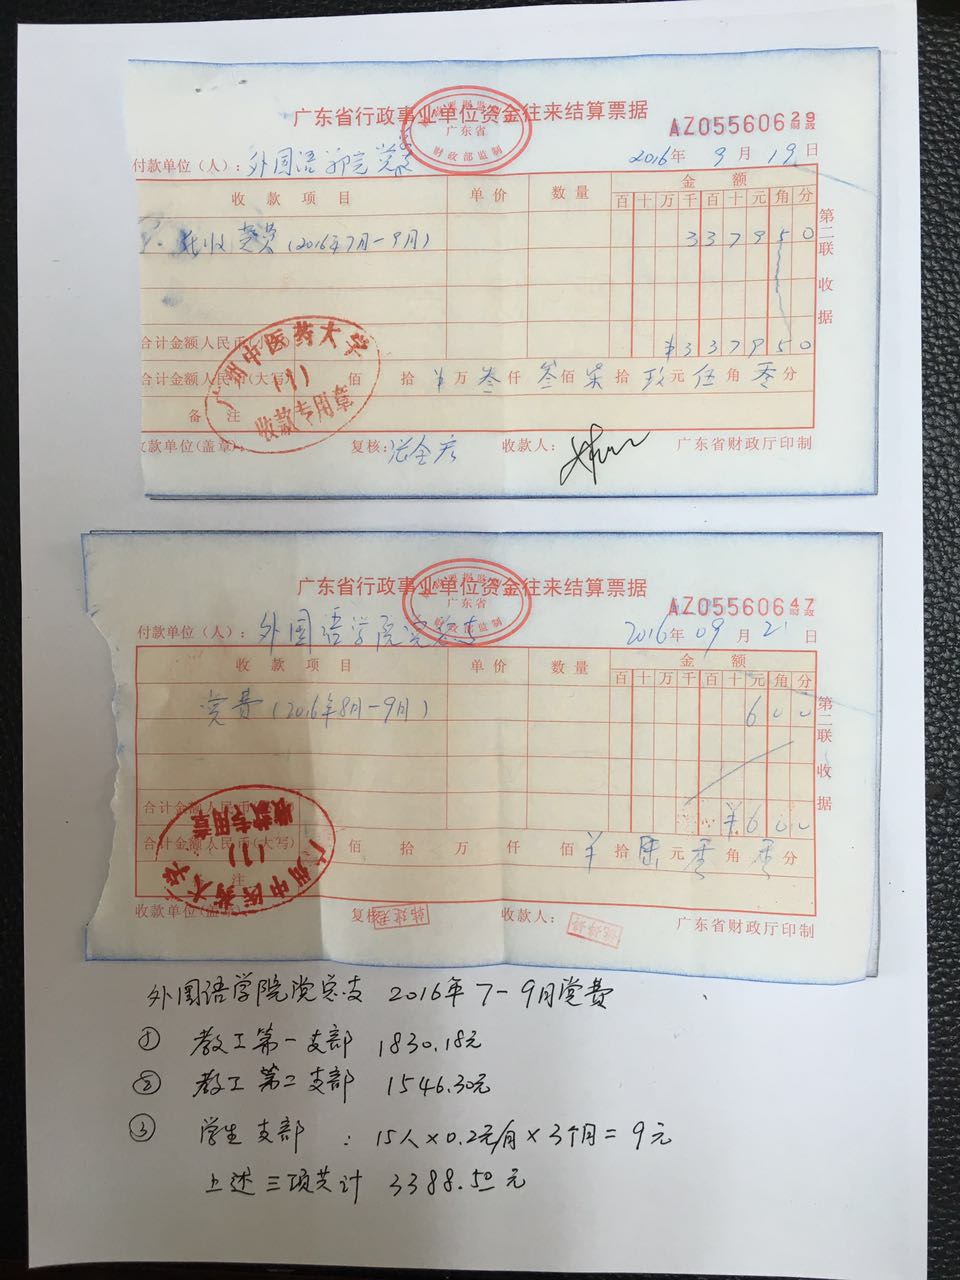 广东省行政事业单位资金往来结算票据
广东省
财政部监制
AZ05560629
财政
付款单位(人): 外国语学院党总支
2016年 9月19日
收款项目 单价 数量 金额
百十万千百十元角分
代收党费(2016年7月-9月) 337950
第二联 收据
合计金额人民币 ¥337950
合计金额人民币(大写) 佰 拾 ¥万叁仟叁佰柒拾玖元伍角零分
备注
广州中医药大学
(1)
收款专用章
收款单位(盖章) 复核: 收款人: 广东省财政厅印制
广东省行政事业单位资金往来结算票据
广东省
财政部监制
AZ05560647
财政
付款单位(人): 外国语学院党总支
2016年09月21日
收款项目 单价 数量 金额
百十万千百十元角分
党费(2016年8月-9月) 600
第二联 收据
合计金额人民币 ¥600
合计金额人民币(大写) 佰 拾 万 仟 佰 ¥拾陆元零角零分
注
广州中医药大学
(1)
收款专用章
收款单位(盖 复核 韩建君 收款人: 广东省财政厅印制
外国语学院党总支 2016年7-9月党费
① 教工第一支部 1830.18元
② 教工第二支部 1546.30元
③ 学生支部: 15人×0.2元/月×3个月=9元
上述三项共计 3388.50元